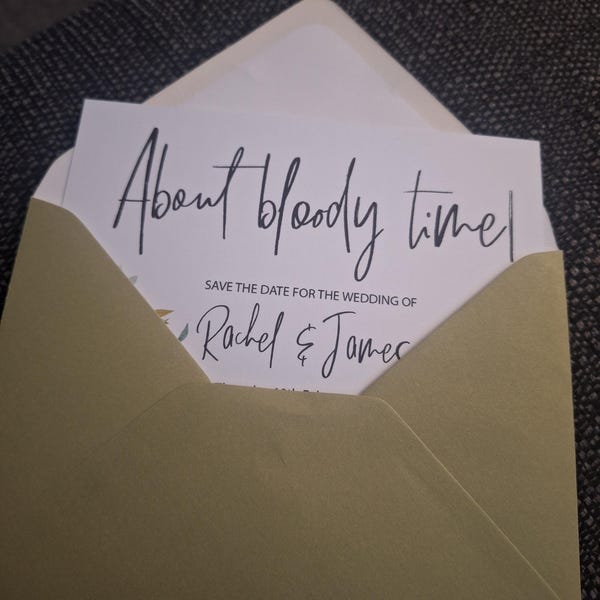 About bloody time!
SAVE THE DATE FOR THE WEDDING OF
Rachel & James